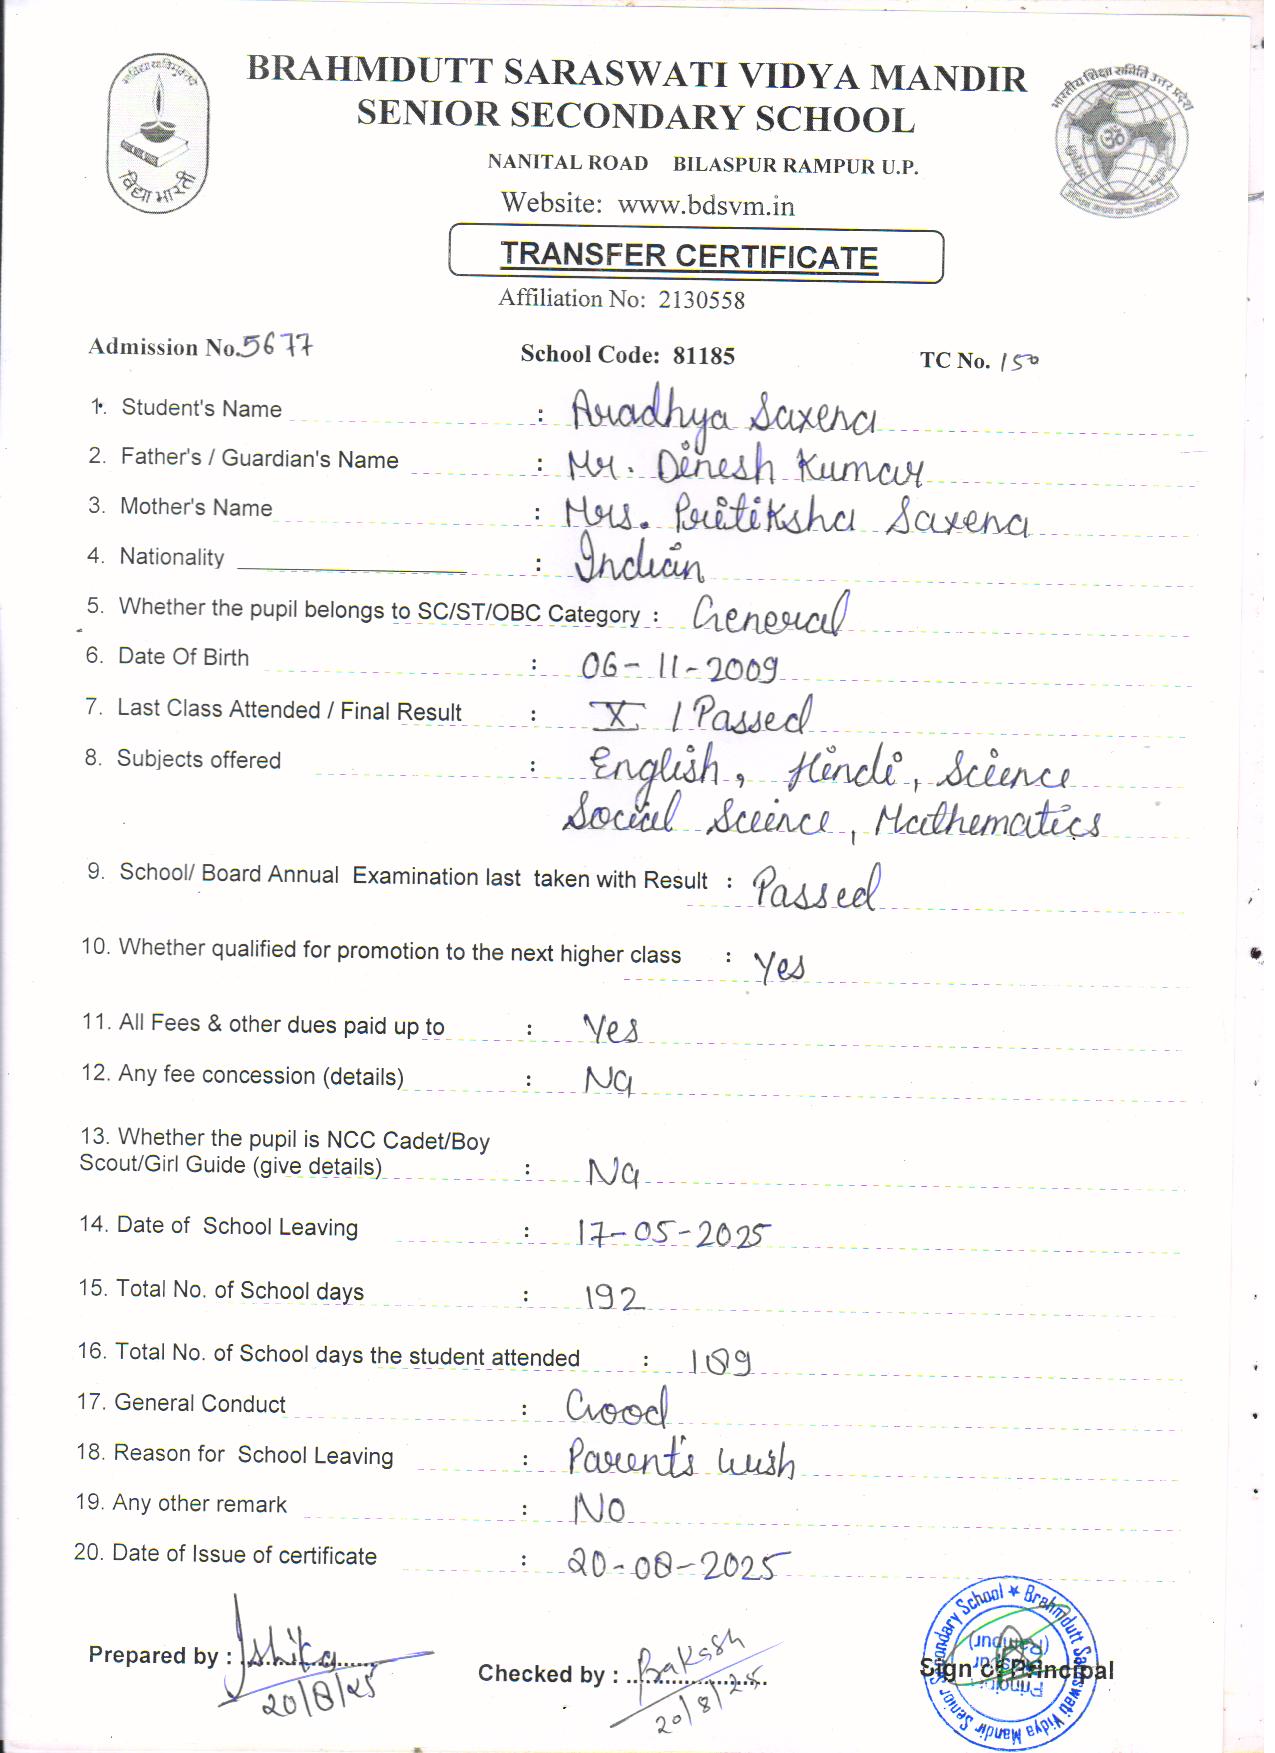 BRAHMDUTT SARASWATI VIDYA MANDIR
SENIOR SECONDARY SCHOOL
NANITAL ROAD BILASPUR RAMPUR U.P.
विद्या भारती
भारतीय शिक्षा समिति उत्तर प्रदेश
Website: www.bdsvm.in
TRANSFER CERTIFICATE
Affiliation No: 2130558
Admission No. 5677 School Code: 81185 TC No. 150
1. Student's Name : Aradhya Saxena
2. Father's / Guardian's Name : Mr. Dinesh Kumar
3. Mother's Name : Mrs. Pritiksha Saxena
4. Nationality : Indian
5. Whether the pupil belongs to SC/ST/OBC Category : General
6. Date Of Birth : 06-11-2009
7. Last Class Attended / Final Result : X / Passed
8. Subjects offered : English, Hindi, Science
Social Science, Mathematics
9. School/ Board Annual Examination last taken with Result : Passed
10. Whether qualified for promotion to the next higher class : Yes
11. All Fees & other dues paid up to : Yes
12. Any fee concession (details) : Na
13. Whether the pupil is NCC Cadet/Boy
Scout/Girl Guide (give details) : Na
14. Date of School Leaving : 17-05-2025
15. Total No. of School days : 192
16. Total No. of School days the student attended : 189
17. General Conduct : Good
18. Reason for School Leaving : Parent's wish
19. Any other remark : NO
20. Date of Issue of certificate : 20-08-2025
Prepared by : Ishika
20/8/25
Checked by :
20/8/25
Sign of Principal
Brahmdutt Saraswati Vidya Mandir Senior Secondary School
Principal
(Rampur)